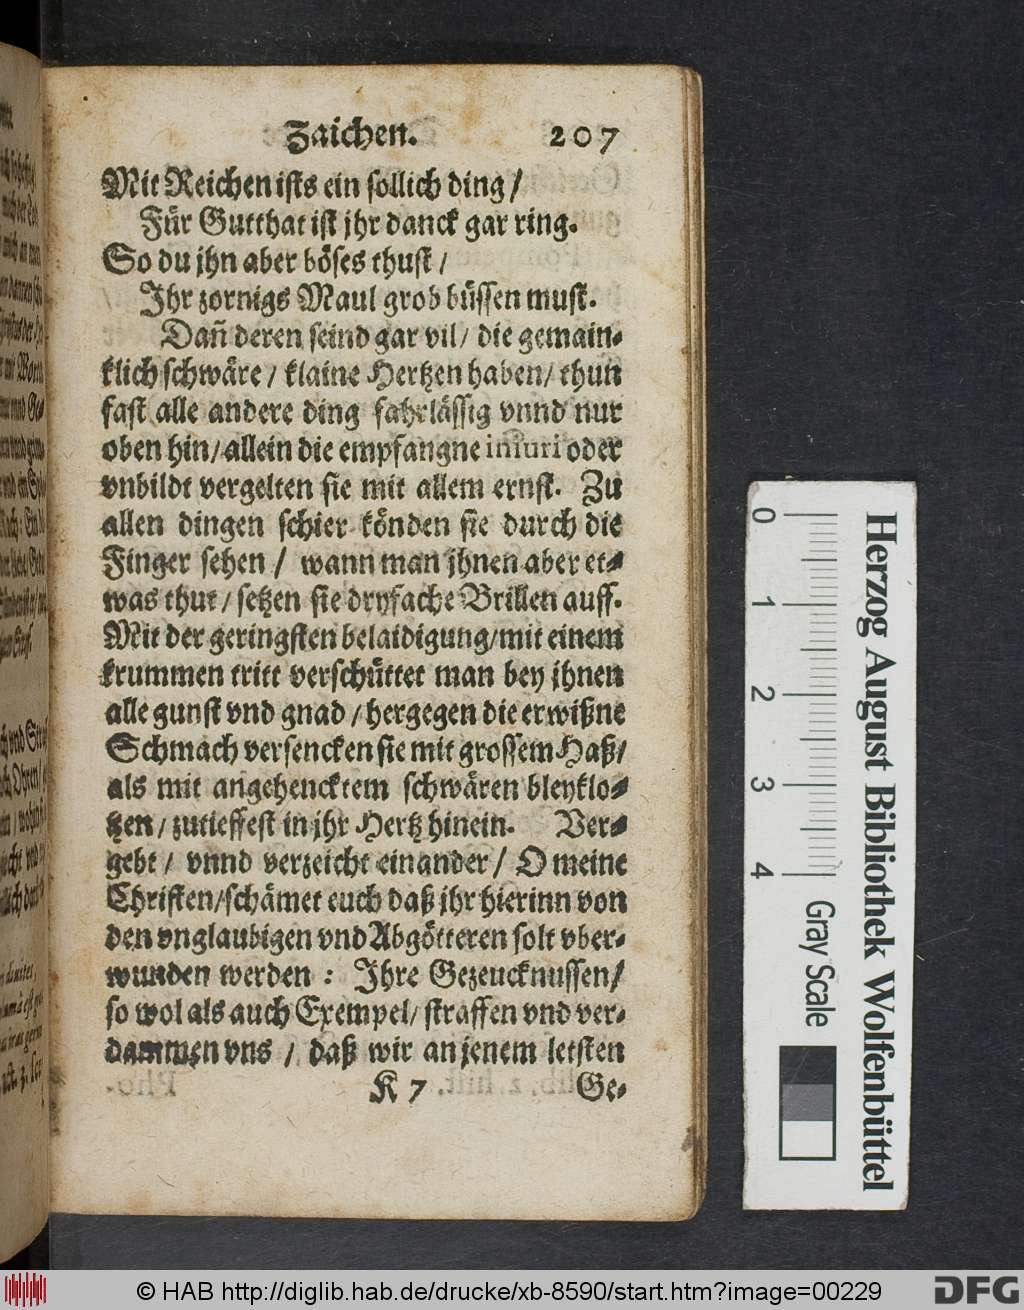 Zaichen. 207
Mit Reichen ists ein sollich ding /
Für Gutthat ist jhr danck gar ring.
So du jhn aber böses thust /
Ihr zornigs Maul grob büssen must.
Dañ deren seind gar vil / die gemain-
klich schwäre / klaine Hertzen haben / thun
fast alle andere ding fahrlässig vnnd nur
oben hin / allein die empfangne iniuri oder
vnbildt vergelten sie mit allem ernst. Zu
allen dingen schier könden sie durch die
Finger sehen / wann man jhnen aber et-
was thut / setzen sie dryfache Brillen auff.
Mit der geringsten belaidigung / mit einem
krummen tritt verschüttet man bey jhnen
alle gunst vnd gnad / hergegen die erwißne
Schmach versencken sie mit grossem Haß /
als mit angehencktem schwären bleyklo-
tzen / zutieffest in jhr Hertz hinein. Ver-
gebt / vnnd verzeicht einander / O meine
Christen / schämet euch daß jhr hierinn von
den vnglaubigen vnd Abgötteren solt vber-
wunden werden : Ihre Gezeucknussen /
so wol als auch Exempel / straffen vnd ver-
dammen vns / daß wir an jenem letsten
K 7 Ge-
0 1 2 3 4 Gray Scale
Herzog August Bibliothek Wolfenbüttel
© HAB http://diglib.hab.de/drucke/xb-8590/start.htm?image=00229
DFG